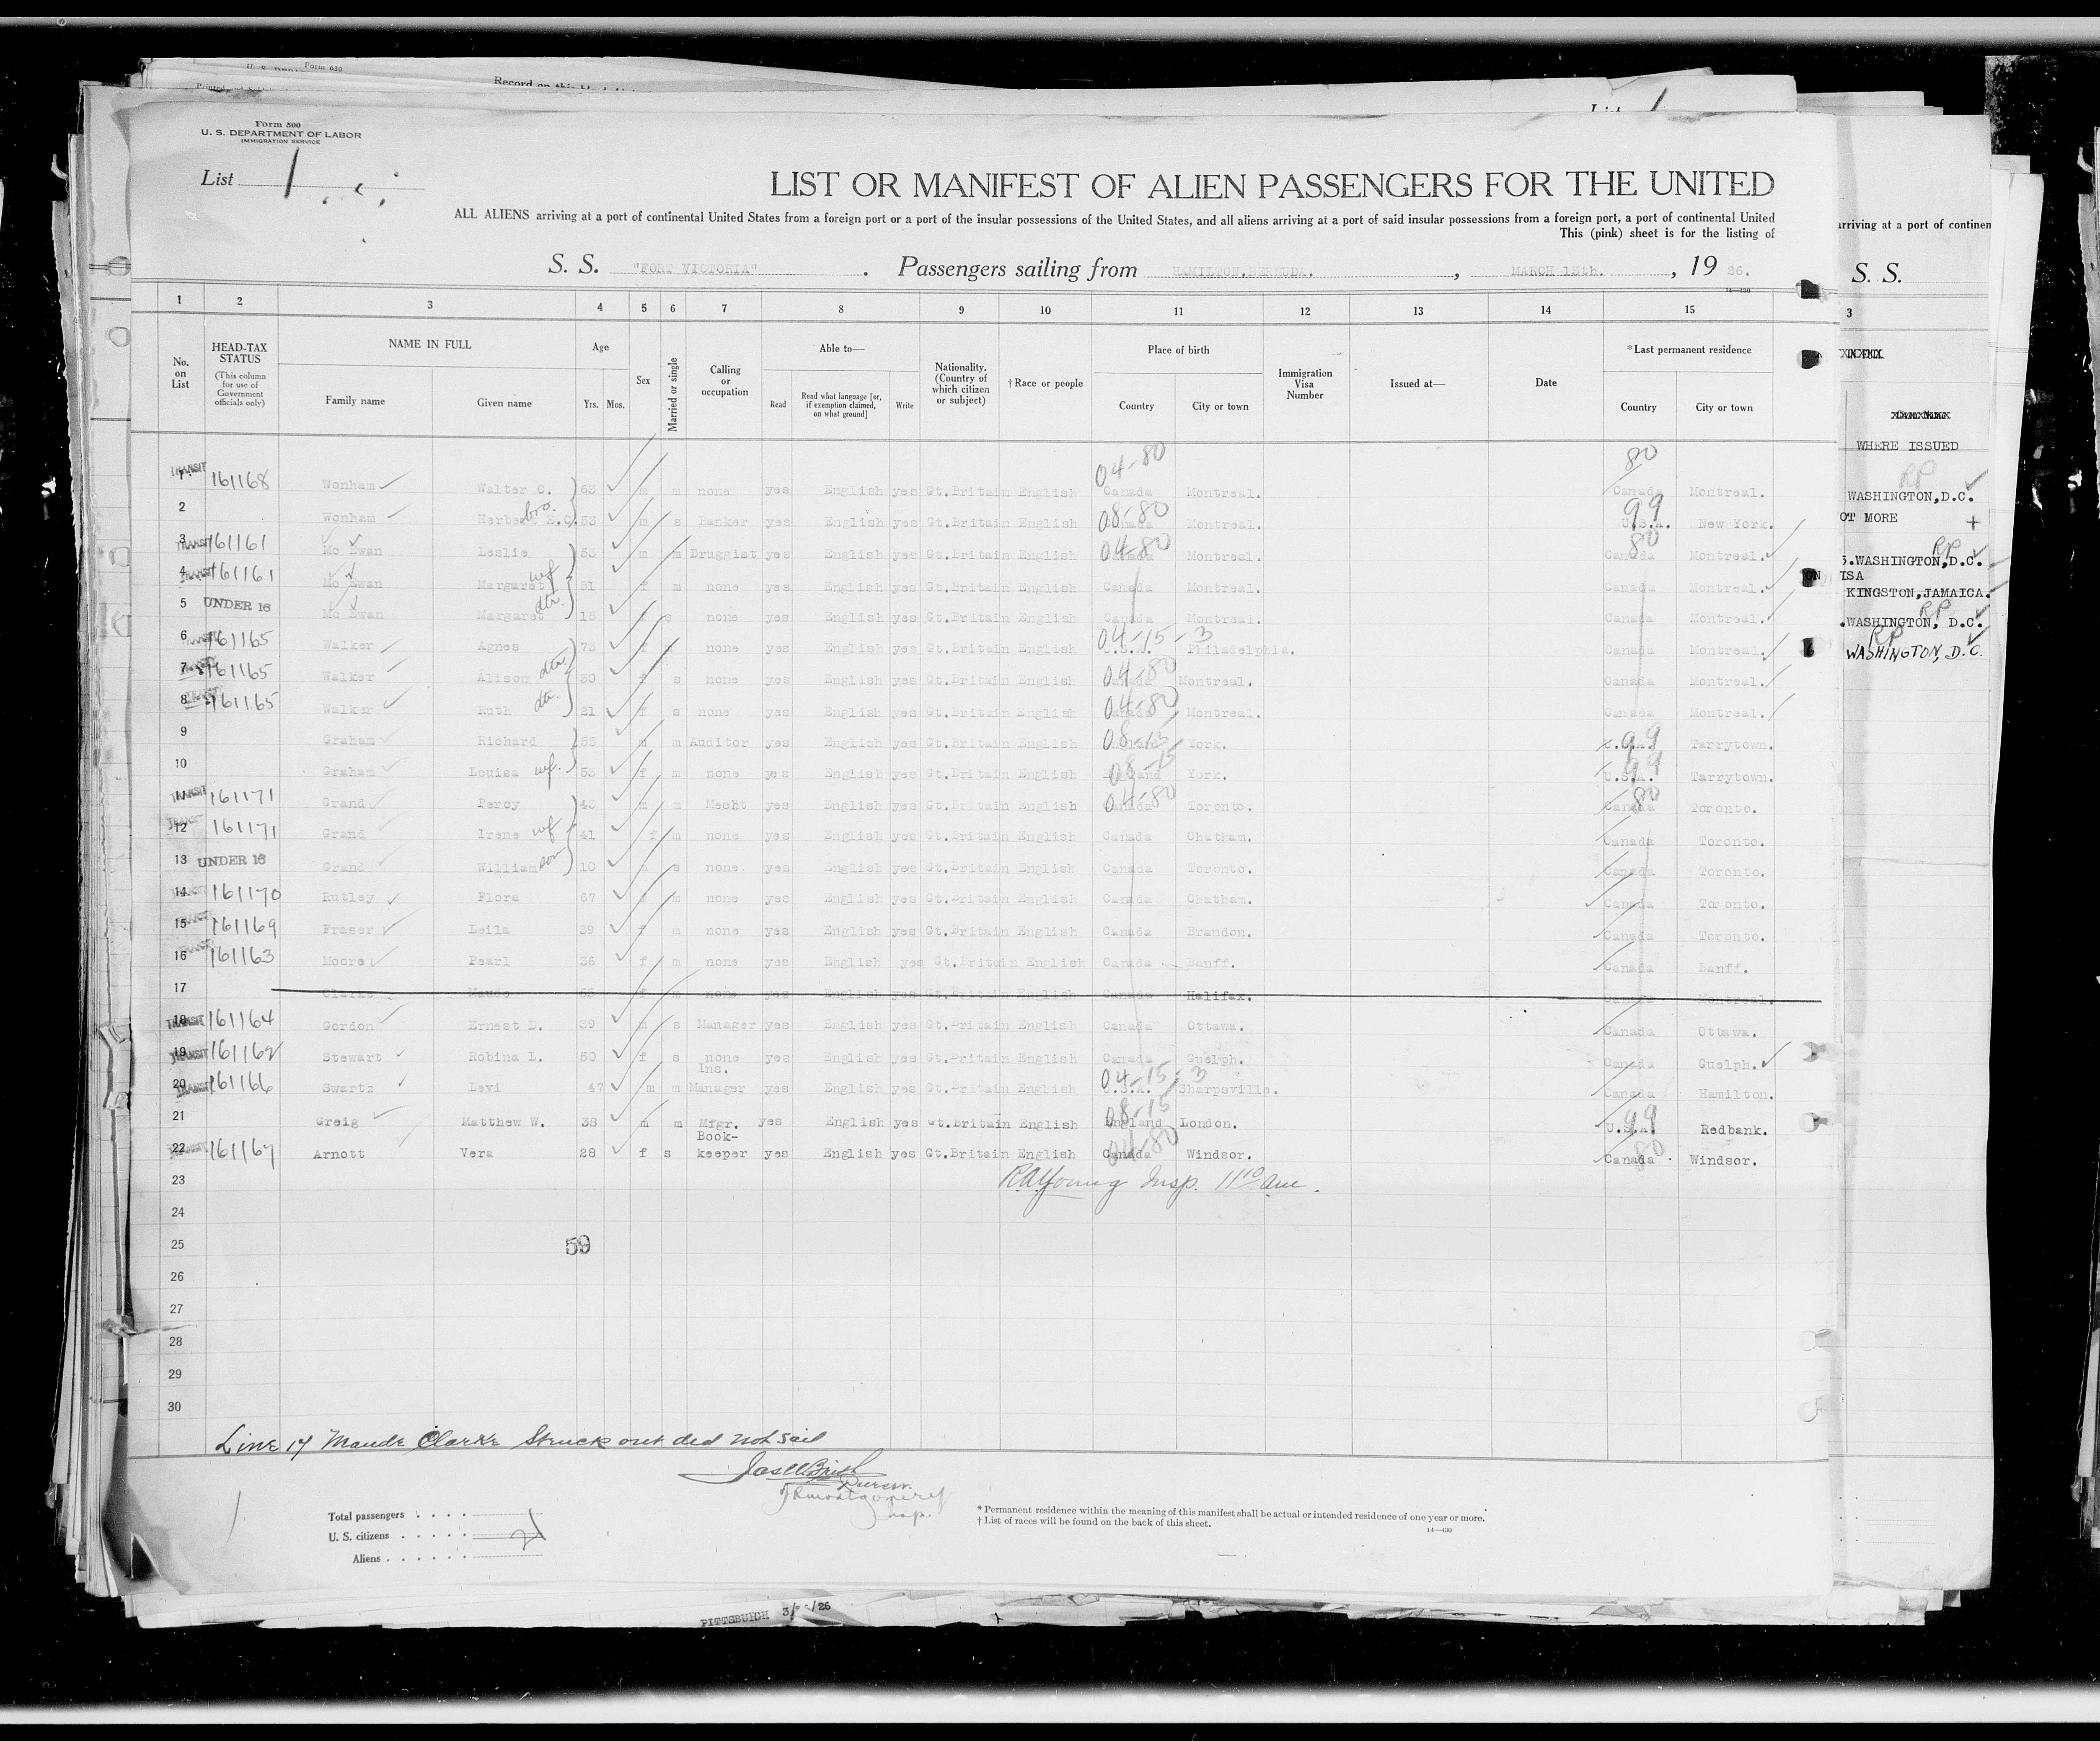 Form 630
Record on this
Form 500
U. S. DEPARTMENT OF LABOR
IMMIGRATION SERVICE
List 1
LIST OR MANIFEST OF ALIEN PASSENGERS FOR THE UNITED
ALL ALIENS arriving at a port of continental United States from a foreign port or a port of the insular possessions of the United States, and all aliens arriving at a port of said insular possessions from a foreign port, a port of continental United
This (pink) sheet is for the listing of
S. S. "FORT VICTORIA". Passengers sailing from HAMILTON, BERMUDA. , MARCH 13th. , 19 26.
14—430
1 2 3 4 5 6 7 8 9 10 11 12 13 14 15
No. on List HEAD-TAX STATUS (This column for use of Government officials only) NAME IN FULL Family name Given name Age Yrs. Mos. Sex Married or single Calling or occupation Able to— Read Read what language [or, if exemption claimed, on what ground] Write Nationality. (Country of which citizen or subject) † Race or people Place of birth Country City or town Immigration Visa Number Issued at— Date * Last permanent residence Country City or town
1 TRANSIT 161168 Wonham Walter C. 63 m m none yes English yes Gt.Britain English 04-80 Canada Montreal. 80 Canada Montreal.
2 Wonham Herbert S.C. bro. 53 m s Banker yes English yes Gt.Britain English 08-80 Canada Montreal. 99 U.S.A. New York.
3 TRANSIT 161161 Mc Ewan Leslie 53 m m Druggist yes English yes Gt.Britain English 04-80 Canada Montreal. 80 Canada Montreal.
4 TRANSIT 161161 Mc Ewan Margaret wf 51 f m none yes English yes Gt.Britain English Canada Montreal. Canada Montreal.
5 UNDER 16 Mc Ewan Margaret dtr. 15 f s none yes English yes Gt.Britain English Canada Montreal. Canada Montreal.
6 TRANSIT 161165 Walker Agnes 73 f none yes English yes Gt.Britain English 04-15-3 U.S.A. Philadelphia. Canada Montreal.
7 TRANSIT 161165 Walker Alison dtr. 30 f s none yes English yes Gt.Britain English 04-80 Canada Montreal. Canada Montreal.
8 TRANSIT 161165 Walker Ruth dtr. 21 f s none yes English yes Gt.Britain English 04-80 Canada Montreal. Canada Montreal.
9 Graham Richard 55 m m Auditor yes English yes Gt.Britain English 08-15 York. 99 U.S.A. Tarrytown.
10 Graham Louisa wf. 53 f m none yes English yes Gt.Britain English 08-15 England York. 99 U.S.A. Tarrytown.
11 TRANSIT 161171 Grand Percy 43 m m Mecht yes English yes Gt.Britain English 04-80 Canada Toronto. 80 Canada Toronto.
12 TRANSIT 161171 Grand Irene wf 41 f m none yes English yes Gt.Britain English Canada Chatham. Canada Toronto.
13 UNDER 16 Grand William son 10 m s none. yes English yes Gt.Britain English Canada Toronto. Canada Toronto.
14 TRANSIT 161170 Rutley Flora 67 f m none yes English yes Gt.Britain English Canada Chatham. Canada Toronto.
15 TRANSIT 161169 Fraser Leila 39 f m none yes English yes Gt.Britain English Canada Brandon. Canada Toronto.
16 TRANSIT 161163 Moore Pearl 36 f m none yes English yes Gt.Britain English Canada Banff. Canada Banff.
17 Clarke Maude 55 f m none yes English yes Gt.Britain English Canada Halifax. Canada Montreal.
18 TRANSIT 161164 Gordon Ernest B. 39 m s Manager yes English yes Gt.Britain English Canada Ottawa. Canada Ottawa.
19 TRANSIT 161162 Stewart Robina L. 50 f s none yes English yes Gt.Britain English Canada Guelph. Canada Guelph.
20 TRANSIT 161166 Swartz Levi 47 m m Ins. Manager yes English yes Gt.Britain English 04-15-3 U.S.A. Sharpsville. Canada Hamilton.
21 Greig Matthew W. 38 m m Mfgr. yes English yes Gt.Britain English 08-15 England London. 99 U.S.A. Redbank.
22 TRANSIT 161167 Arnott Vera 28 f s Book-keeper yes English yes Gt.Britain English 04-80 Canada Windsor. 80 Canada Windsor.
23 R A Young Insp.
24
25 59
26
27
28
29
30
Line 17 Maude Clarke Struck out did not sail
Purser.
Montgomery
Insp.
Total passengers
U. S. citizens
Aliens
21
* Permanent residence within the meaning of this manifest shall be actual or intended residence of one year or more.
† List of races will be found on the back of this sheet.
14—430
arriving at a port of continen
S. S.
3
WHERE ISSUED
RP
WASHINGTON,D.C.
OT MORE +
RP
WASHINGTON,D.C.
ON ISA
KINGSTON,JAMAICA.
RP
WASHINGTON, D.C.
RP
WASHINGTON, D.C.
PITTSBURGH